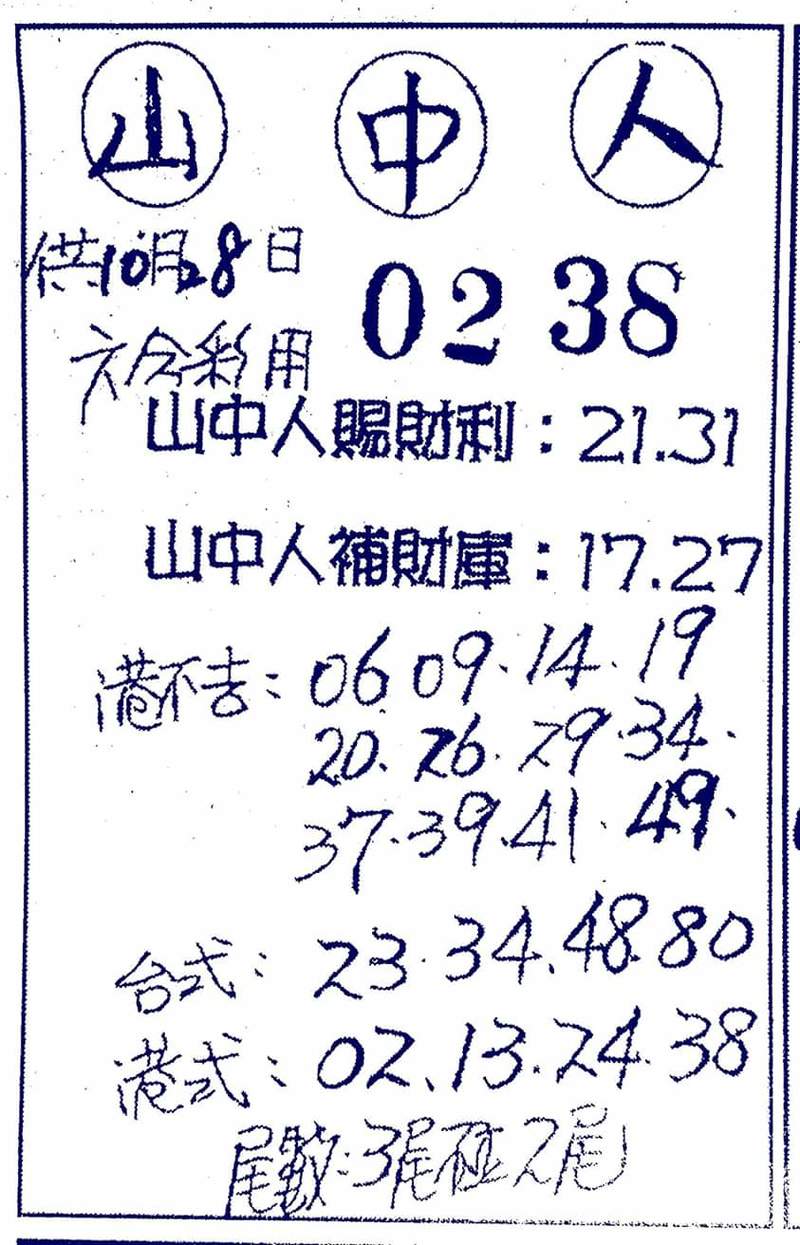 山 中 人
供10月28日
02 38
六合彩用
山中人賜財利：21.31
山中人補財庫：17.27
港不去：06 09.14.19
20.26.29.34.
37.39.41.49.
台式：23.34.48.80
港式：02.13.24.38
尾數：3尾 2尾